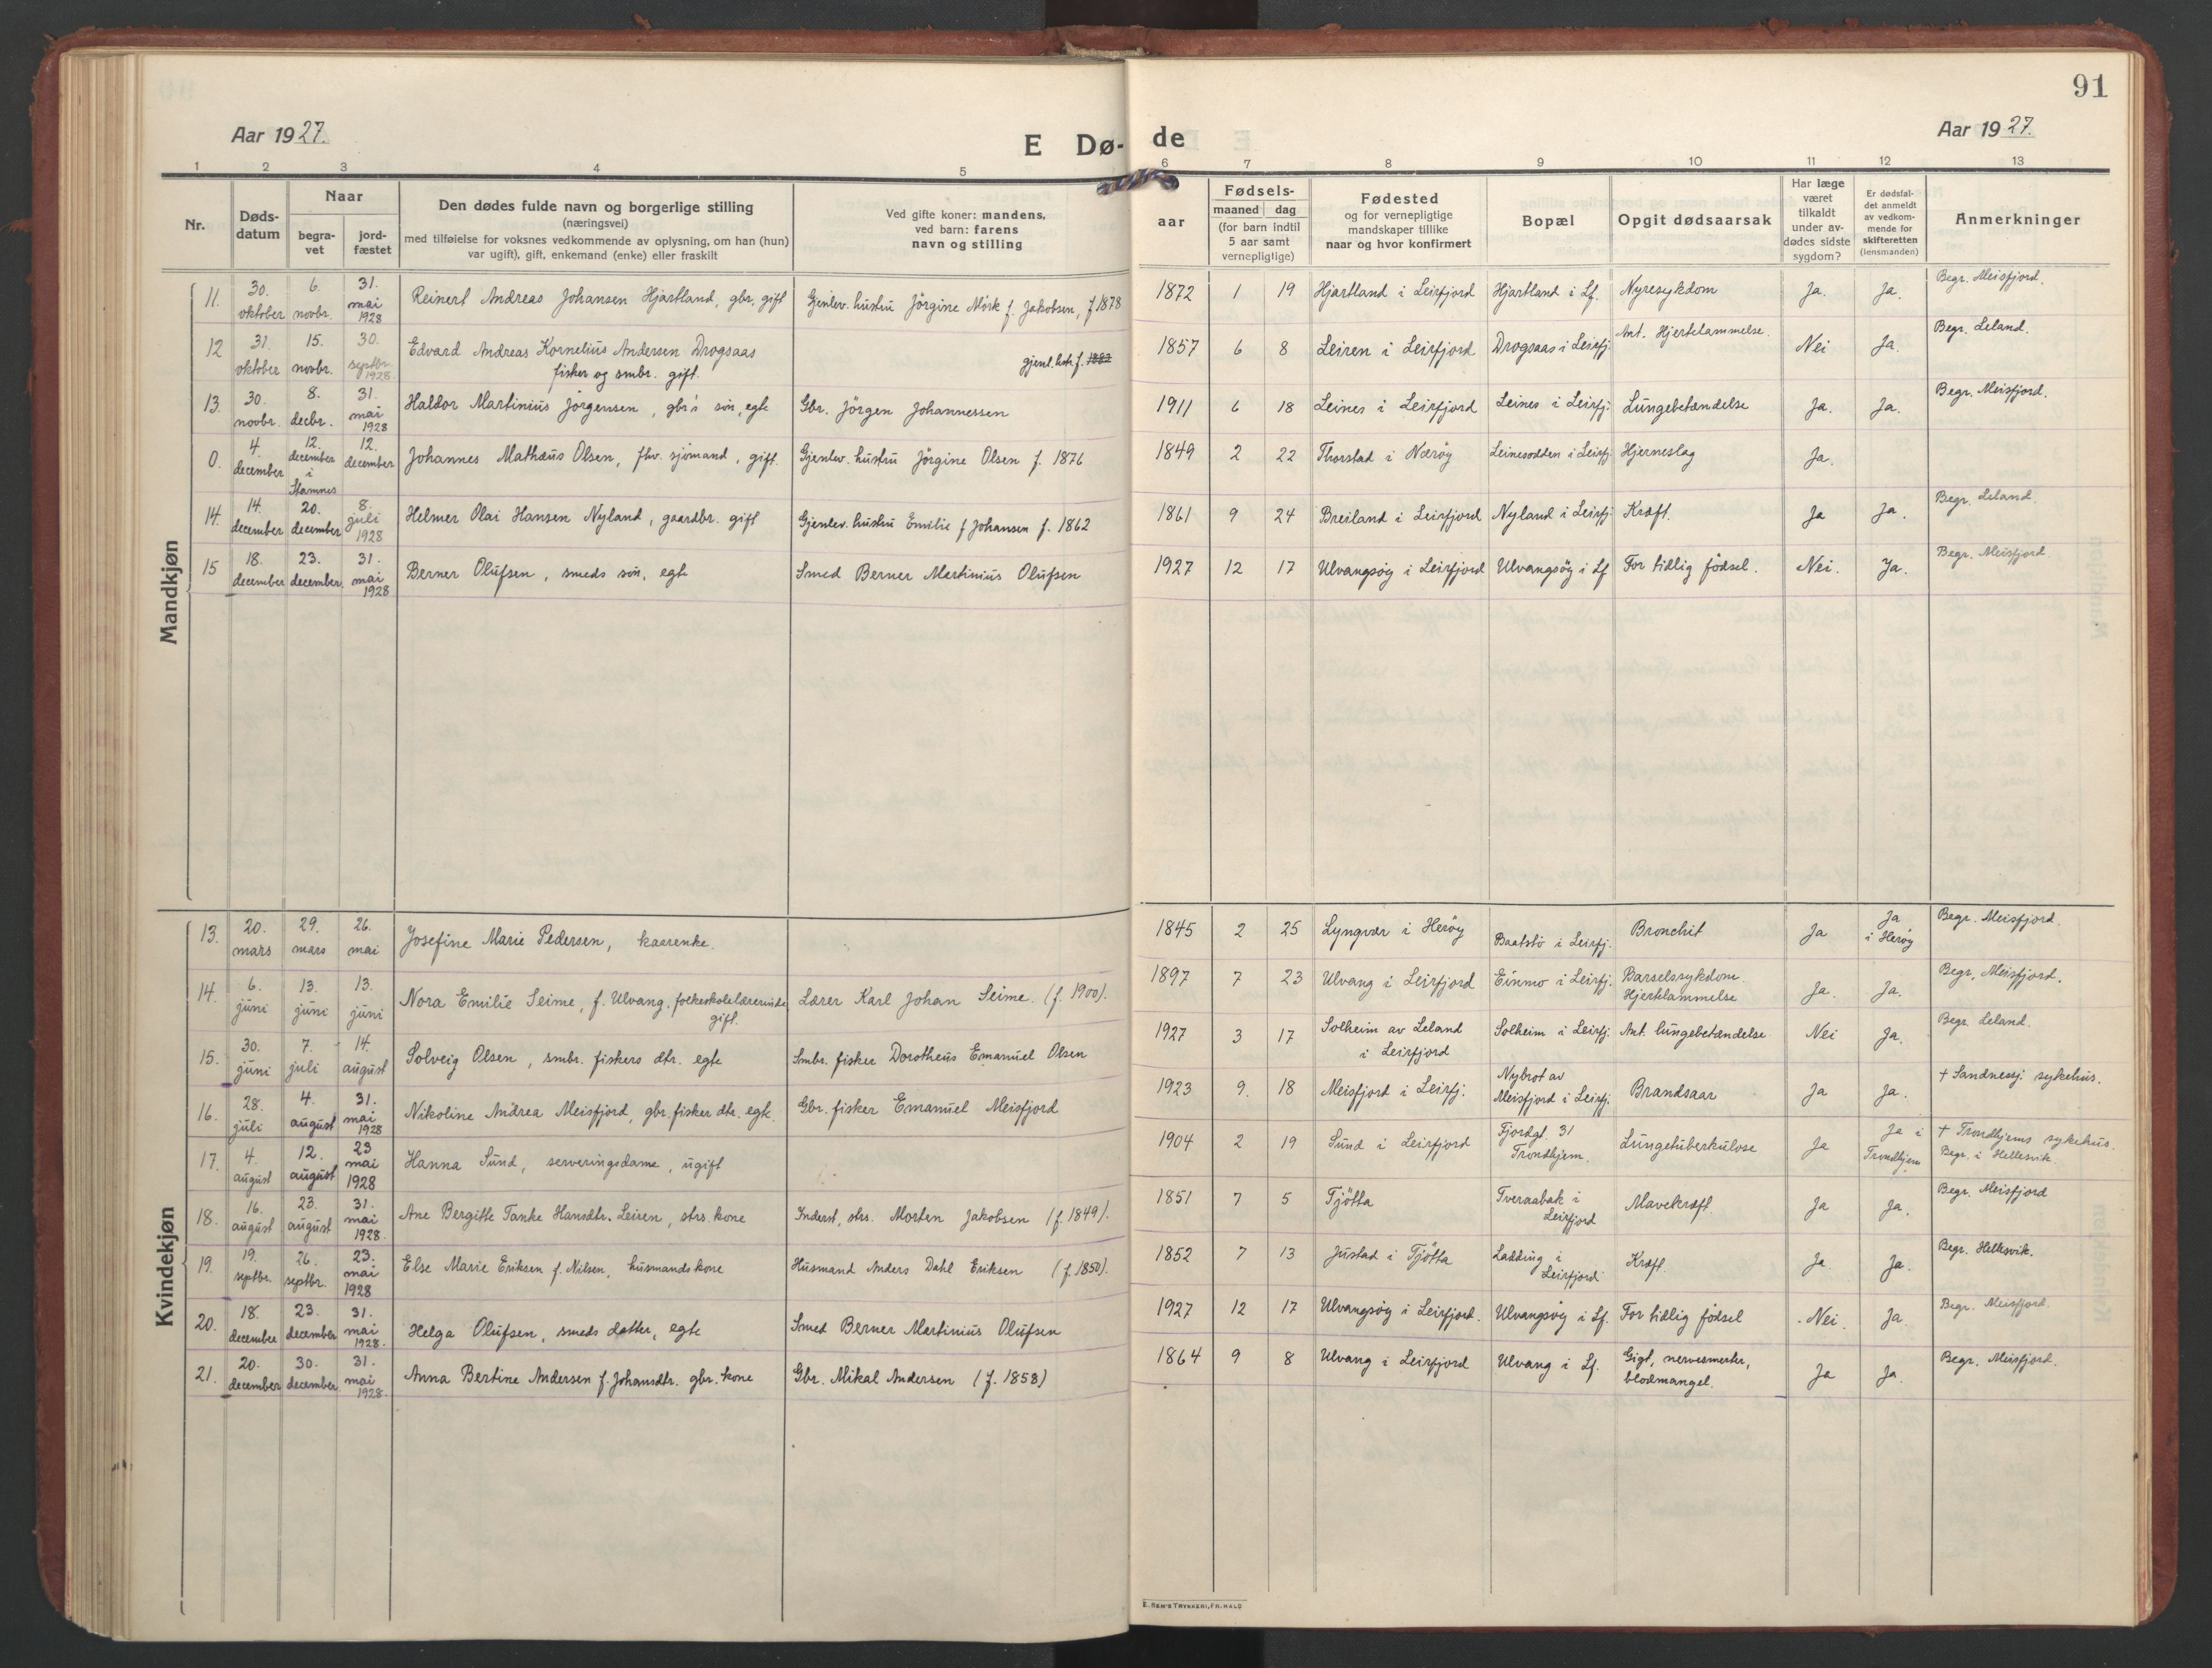 91
Aar 1927.
E Dø-
de
Aar 1927.
1 2 3 4 5 6 7 8 9 10 11 12 13
Nr.
Døds-
datum
Naar
begra-
vet
jord-
fæstet
Den dødes fulde navn og borgerlige stilling
(næringsvei)
med tilføielse for voksnes vedkommende av oplysning, om han (hun)
var ugift), gift, enkemand (enke) eller fraskilt
Ved gifte koner: mandens,
ved barn: farens
navn og stilling
aar
Fødsels-
maaned dag
(for barn indtil
5 aar samt
vernepligtige)
Fødested
og for vernepligtige
mandskaper tillike
naar og hvor konfirmert
Bopæl
Opgit dødsaarsak
Har læge
været
tilkaldt
under av-
dødes sidste
sygdom?
Er dødsfal-
det anmeldt
av vedkom-
mende for
skifteretten
(lensmanden)
Anmerkninger
Mandkjøn
11. 30. oktober 6. novbr. 31. mai 1928 Reinert Andreas Johansen Hjartland, gbr, gift Gjenlev. hustru Jörgine Mörk f. Jakobsen, f 1878 1872 1 19 Hjartland i Leirfjord Hjartland i Lf. Nyresykdom Ja. Ja. Begr. Meisfjord.
12 31. oktober 15. novbr. 30. septbr. 1928. Edvard Andreas Kornelius Andersen Drogsaas
fisker og smbr. gift. gjenl. hstr. f. 1882 1857 6 8 Leiren i Leirfjord Drogsaas i Leirfj. Ant. Hjertelammelse. Nei Ja. Begr. Leland.
13. 30. novbr. 8. decbr. 31. mai 1928 Haldor Martinius Jörgensen, gbr's sön, egte Gbr. Jörgen Johannessen 1911 6 18 Leines i Leirfjord Leines i Leirfj. Lungebetændelse Ja. Ja. Begr. Meisfjord.
0. 4. december 12. december i Stamnes 12. december Johannes Mathæus Olsen, fhv. sjömand, gift. Gjenlev. hustru Jörgine Olsen f. 1876 1849 2 22 Thorstad i Nærøy Leinesodden i Leirfj. Hjerneslag Ja.
14. 14. december 20. december 8. juli 1928 Helmer Olai Hansen Nyland, gaardbr. gift Gjenlev. hustru Emilie f Johansen f. 1862 1861 9 24 Breiland i Leirfjord Nyland i Leirfj. Kræft. Ja Ja. Begr. Leland
15 18. december 23. december. 31. mai 1928 Berner Olufsen, smeds sön, egte Smed Berner Martinius Olufsen 1927 12 17 Ulvangsøy i Leirfjord Ulvangsöy i Lf For tidlig födsel. Nei. Ja. Begr. Meisfjord
Kvindekjøn
13. 20. mars 29. mars 26. mai Josefine Marie Pedersen, kaarenke. 1845 2 25 Lyngvær i Herøy Baatstö i Leirfj. Bronchit Ja Ja i Herøy Begr. Meisfjord.
14. 6. juni 13. juni 13. juni Nora Emilie Seime, f. Ulvang. folkeskolelærerinde
gift. Lærer Karl Johan Seime. (f. 1900). 1897 7 23 Ulvang i Leirfjord Einmo i Leirfj. Barselssykdom.
Hjertelammelse Ja. Ja. Begr. Meisfjord.
15. 30. juni 7. juli 14. august Solveig Olsen, smbr. fiskers dtr. egte Smbr. fisker Dorotheus Emanuel Olsen 1927 3 17 Solheim av Leland
i Leirfjord Solheim i Leirfj. Ant. lungebetændelse Nei Ja. Begr. Leland.
16. 28. juli 4. august 31. mai 1928 Nikoline Andrea Meisfjord, gbr. fisker dtr. egte. Gbr. fisker Emanuel Meisfjord 1923 9. 18 Meisfjord i Leirfj. Nybrot av
Meisfjord i Leirfj. Brandsaar Ja Ja. + Sandnessj. sykehus.
17. 4. august 12. august 23 mai 1928 Hanna Sund, serveringsdame, ugift 1904 2 19 Sund i Leirfjord Fjordgt. 31
Trondhjem. Lungetuberkulose Ja Ja i Trondhjem + Trondhjems sykehus.
Begr. i Hellesvik.
18. 16. august 23. august 31. mai 1928. Ane Bergitte Tanke Hansdtr. Leiren, strs. kone Inderst, strs. Morten Jakobsen (f. 1849). 1851 7 5 Tjötta Tveraabak i
Leirfjord Mavekræft. Ja Ja. Begr. Meisfjord
19. 19. septbr. 26. septbr. 23. mai 1928 Else Marie Eriksen f. Nilsen, husmandskone Husmand Anders Dahl Eriksen (f. 1850). 1852 7 13 Justad i Tjötta Ladding i
Leirfjord Kræft. Ja. Ja. Begr. Hellesvik.
20. 18. december 23. december 31. mai 1928. Helga Olufsen, smeds datter, egte Smed Berner Martinius Olufsen 1927 12 17 Ulvangsøy i Leirfjord. Ulvangsøy i Lf. For tidlig födsel Nei. Ja. Begr. Meisfjord.
21. 20. december 30. december. 31. mai 1928. Anna Bertine Andersen f. Johansdtr. gbr. kone Gbr. Mikal Andersen (f. 1858) 1864 9 8 Ulvang i Leirfjord Ulvang i Lf. Gigt, nervesmerter,
blodmangel. Ja Ja. Begr. Meisfjord.
E. SEM'S TRYKKERI, FR. HALD